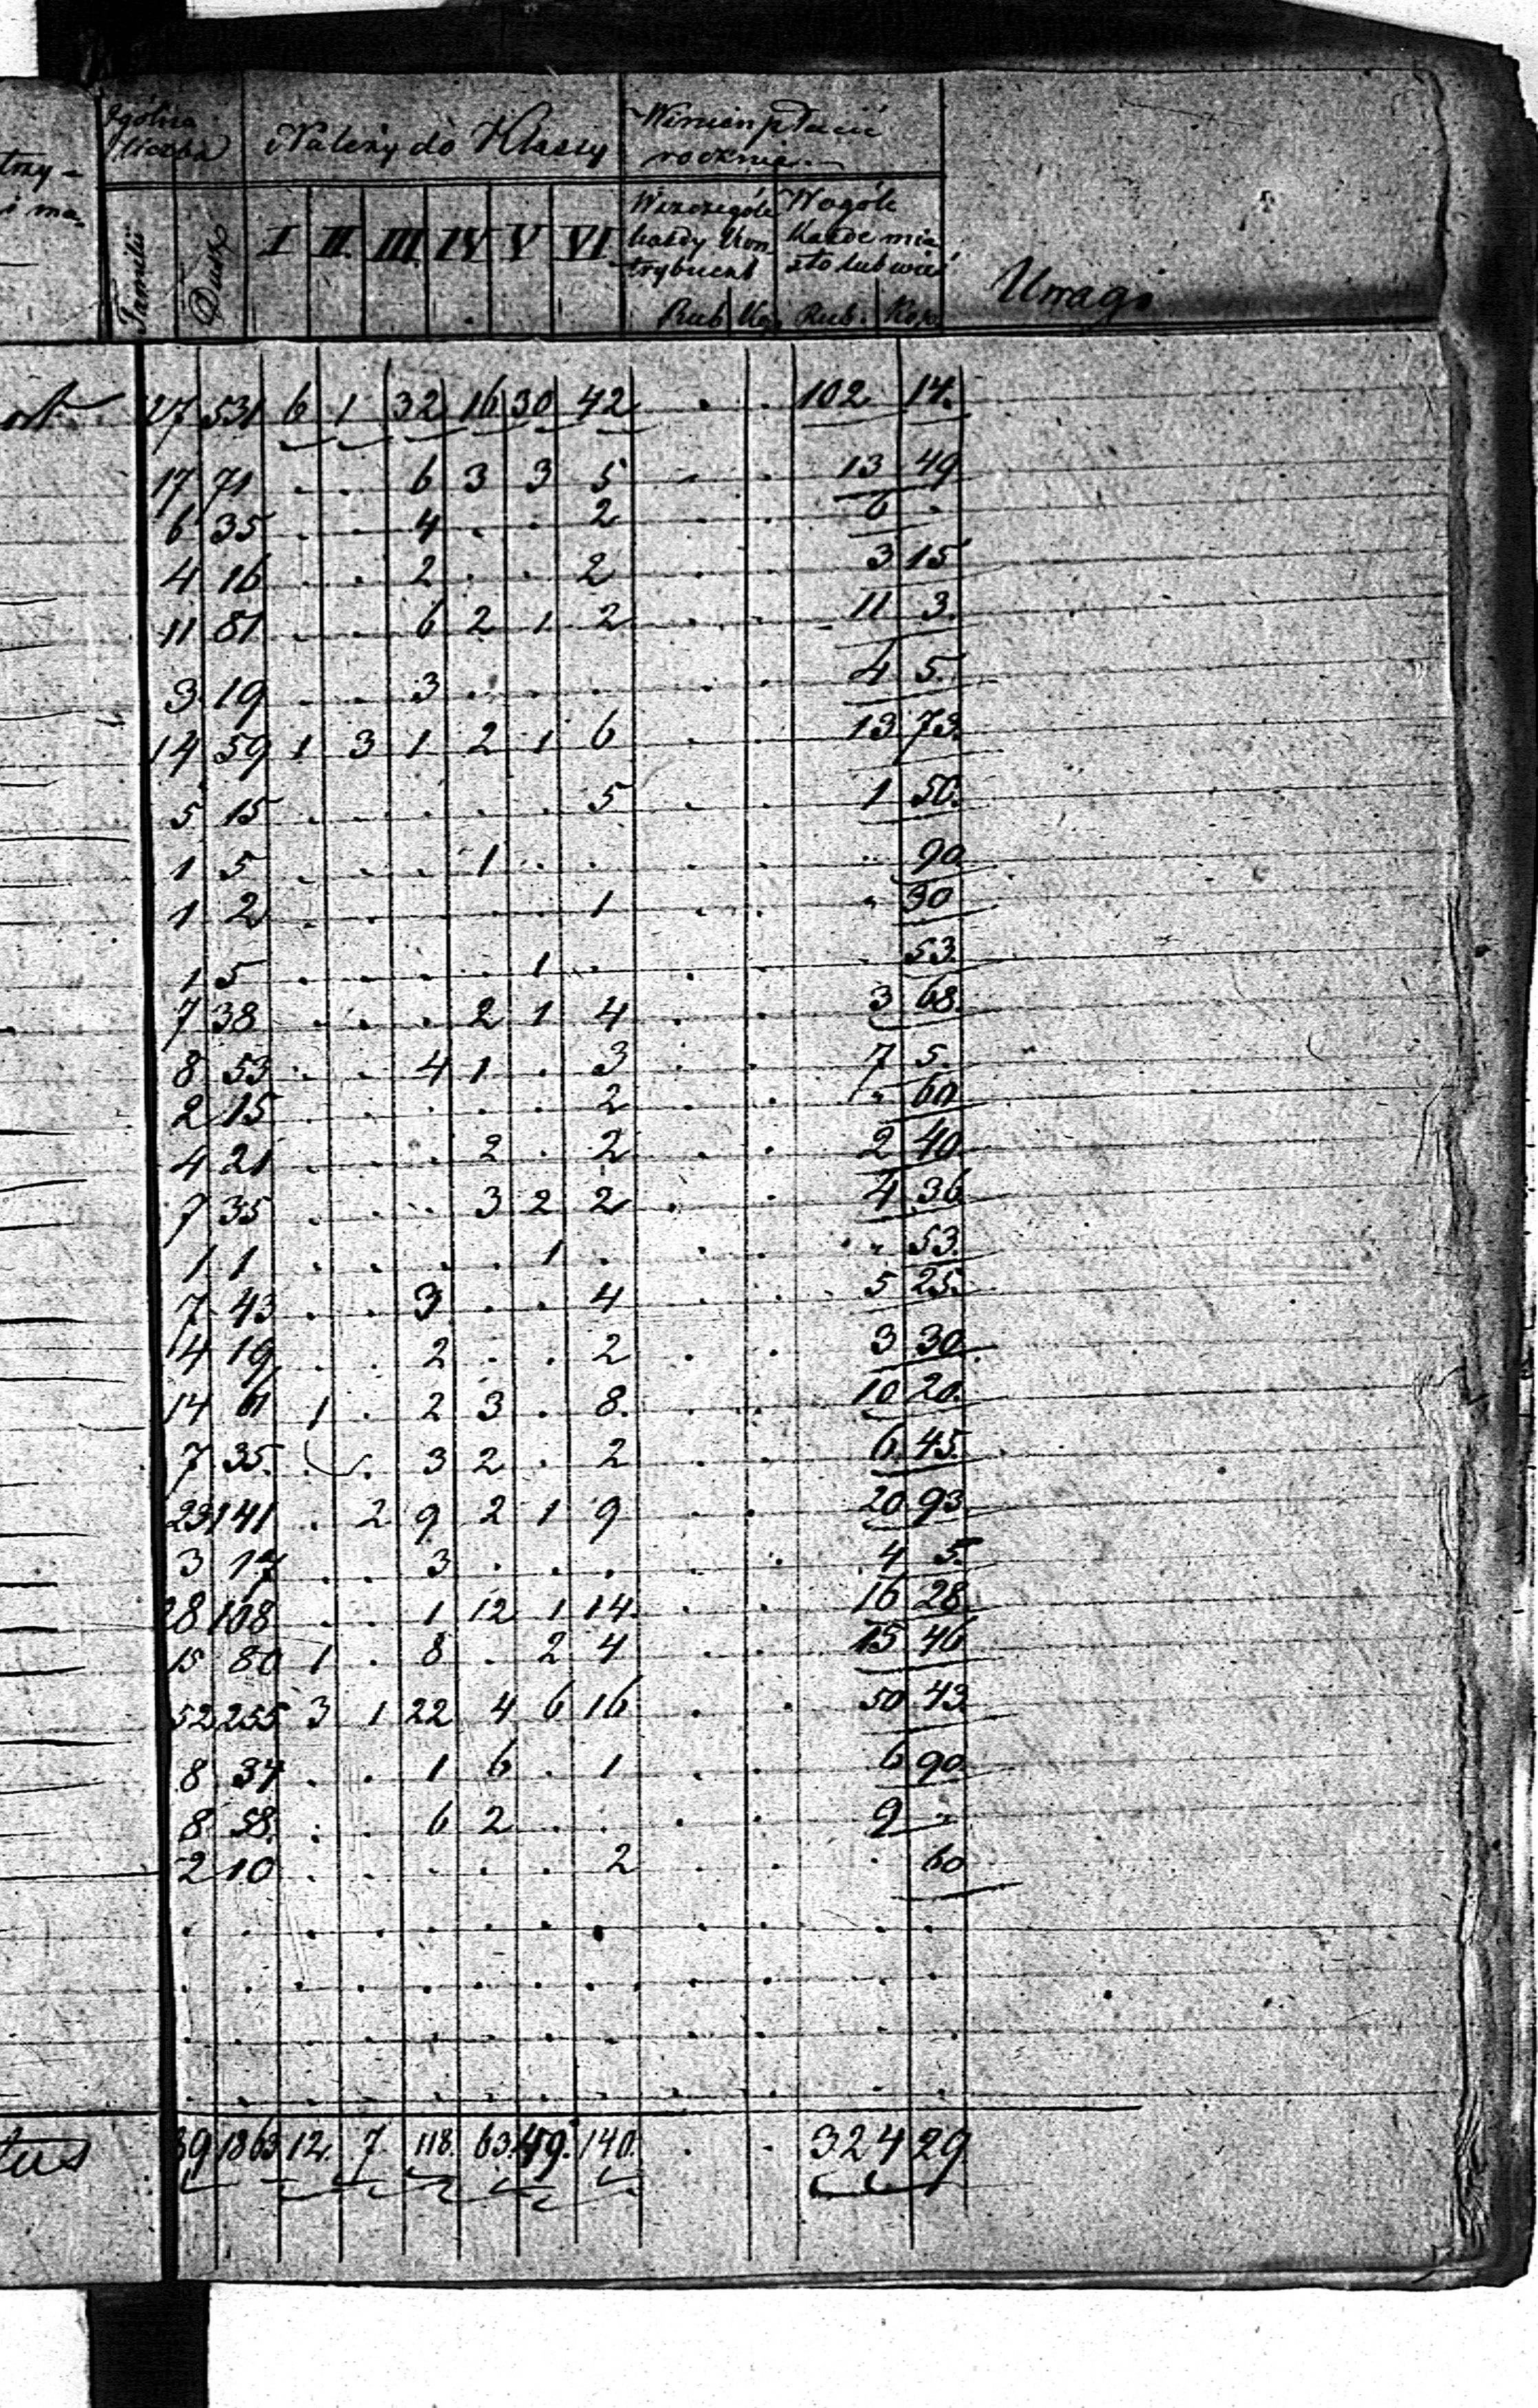 Ogólna liczba Należy do Klassy Winien płacić rocznie
Familii Dusz I II. III. IV V VI Wszczególe każdy Kontrybuent Rub. Kop. Wogóle każde miasto lub wieś Rub. Kop. Uwagi
27 531 6 1 32 16 30 42 . . 102 14.
17 71 . . 6 3 3 5 . . 13 49
6 35 . . 4 . . 2 . . 6 .
4 16 . . 2 . . 2 . . 3 15
11 81 . . 6 2 1 2 . . 11 3.
3 19 . . 3 . . . . . 4 5.
14 59 1 3 1 2 1 6 . . 13 73.
5 15 . . . . . 5 . . 1 50.
1 5 . . . 1 . . . . . 90
1 2 . . . . . 1 . . . 30
1 5 . . . . 1 . . . . 53.
7 38 . . . 2 1 4 . . 3 68.
8 53 . . 4 1 . 3 . . 7 5.
2 15 . . . . . 2 . . . 60
4 21 . . . 2 . 2 . . 2 40
7 35 . . . 3 2 2 . . 4 36
1 1 . . . . 1 . . . . 53.
7 43 . . 3 . . 4 . . 5 25.
4 19 . . 2 . . 2 . . 3 30
14 61 1 . 2 3 . 8. . . 10 20.
7 35. . . 3 2 . 2 . . 6 45.
23 141 . 2 9 2 1 9 . . 20 93
3 17 . . 3 . . . . . 4 5.
28 108 . . 1 12 1 14 . . 16 28
15 80 1 . 8 . 2 4 . . 15 46
52 255 3 1 22 4 6 16 . . 50 43
8 37 . . 1 6 . 1 . . 6 90
8 58. . . 6 2 . . . . 9 .
2 10 . . . . . 2 . . . 60
39 1863 12. 7. 118. 63. 49. 140. . . 324 29